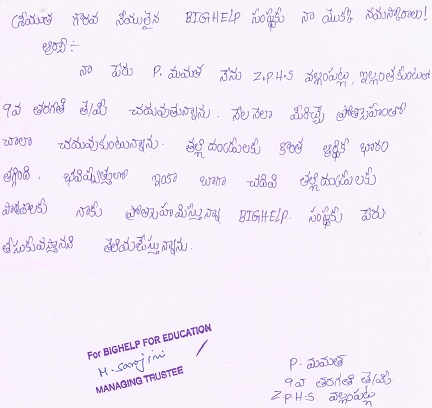 శ్రీయుత గౌరవ నీయులైన BIGHELP సంస్థకు నా యొక్క నమస్కారాలు!
నా పేరు P. మమత నేను Z.P.H.S వల్లంపట్ల, ఇల్లంతకుంటలో
9వ తరగతి తె/మీ చదువుతున్నాను. నెల నెలా మీరిచ్చే ప్రోత్సాహంతో
చాలా చదువుకుంటున్నాను. తల్లిదండ్రులకు కొంత ఆర్థిక భారం
తగ్గింది. భవిష్యత్తులో ఇంకా బాగా చదివి తల్లిదండ్రులకు
పాఠశాలకు నాకు ప్రోత్సాహమిస్తున్న BIGHELP. సంస్థకు పేరు
తీసుకువస్తానని తెలియజేస్తున్నాను.
For BIGHELP FOR EDUCATION
M. Sarojini
MANAGING TRUSTEE
P. మమత
9వ తరగతి తె/మీ
Z.P.H.S వల్లంపట్ల